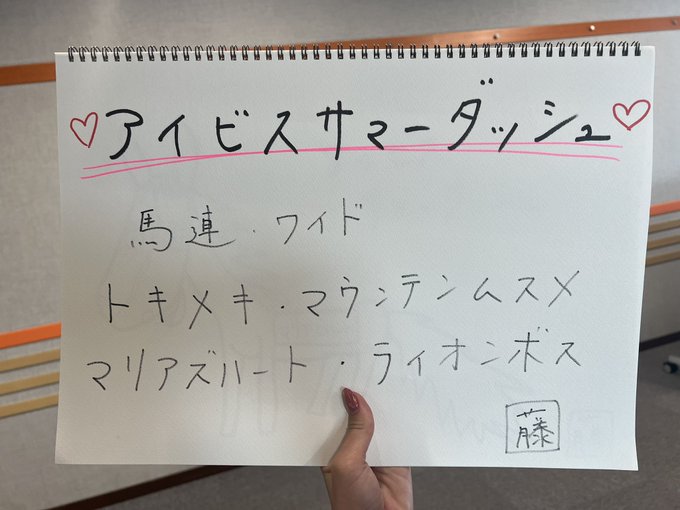 アイビスサマーダッシュ
馬連・ワイド
トキメキ・マウンテンムスメ
マリアズハート・ライオンボス
藤